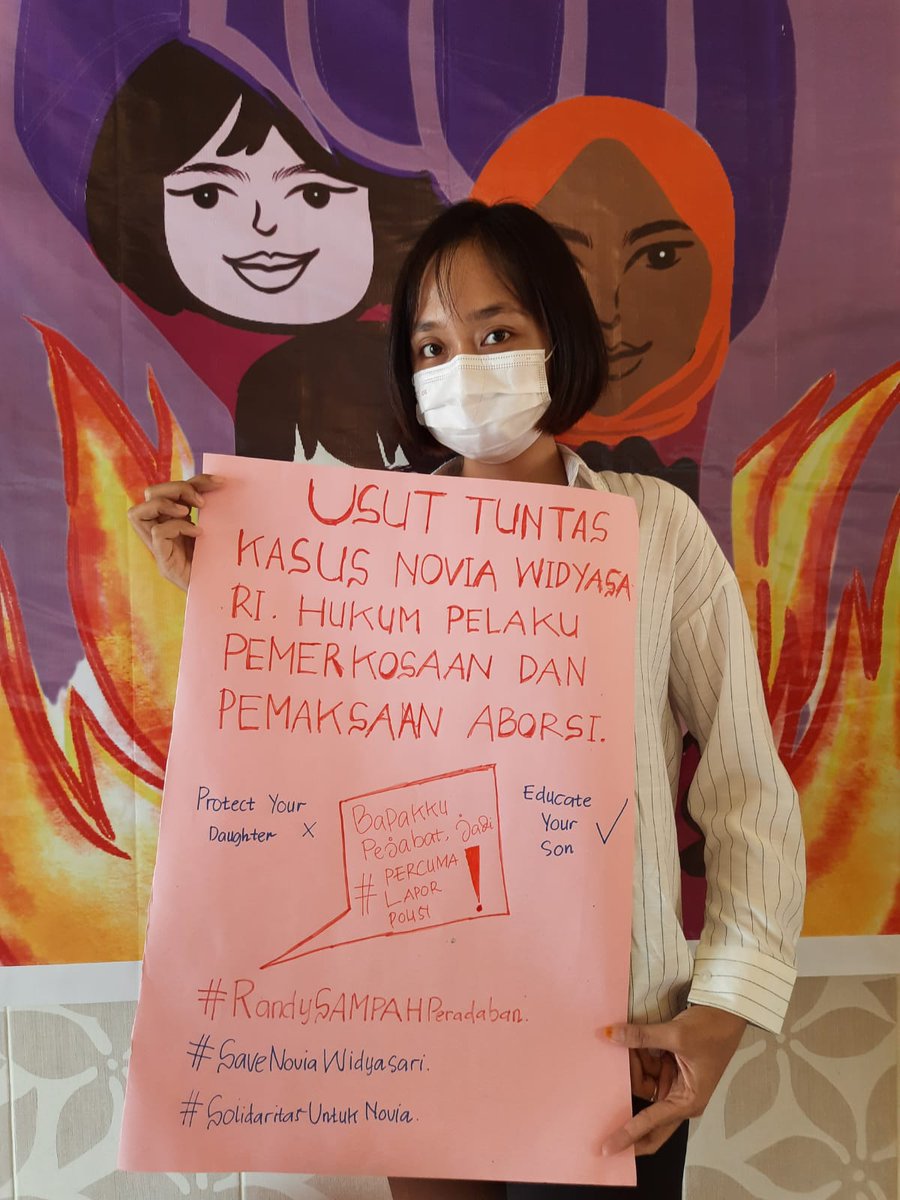 USUT TUNTAS
KASUS NOVIA WIDYASA
RI. HUKUM PELAKU
PEMERKOSAAN DAN
PEMAKSAAN ABORSI.
Protect Your
Daughter X
Bapakku
Pejabat, jadi
# PERCUMA
LAPOR
POLISI
!
Educate
Your
Son ✓
#RandySAMPAHPeradaban.
#SaveNoviaWidyasari.
#Solidaritas Untuk Novia.